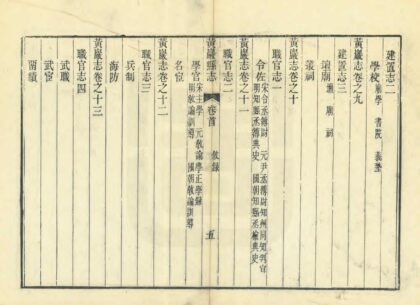 建置志二
學校 廟學 書院 義塾
黃巖志卷之九
建置志三
壇廟 壇 廟 祠
叢祠
黃巖志卷之十
職官志一
令佐 宋令丞簿尉 元尹丞簿尉知州同知判官
明知縣丞簿典史 國朝知縣丞典史
黃巖志卷之十一
職官志二
黃巖縣志 卷首 敘錄 五
學官 宋主學 元教諭學正學錄
明教諭訓導 國朝教諭訓導
名宦
黃巖志卷之十二
職官志三
兵制
海防
黃巖志卷之十三
職官志四
武職
武宦
績